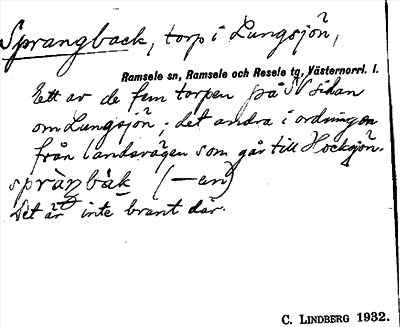 Sprangback, torp i Lungsjön,
Ramsele sn, Ramsele och Resele tg, Västernorrl. l.
Ett av de fem torpen på N sidan
om Lungsjön; det andra i ordningen
från landsvägen som går till Hocksjön.
spràŋbàk (—en)
Det är inte brant där.
C. LINDBERG 1932.